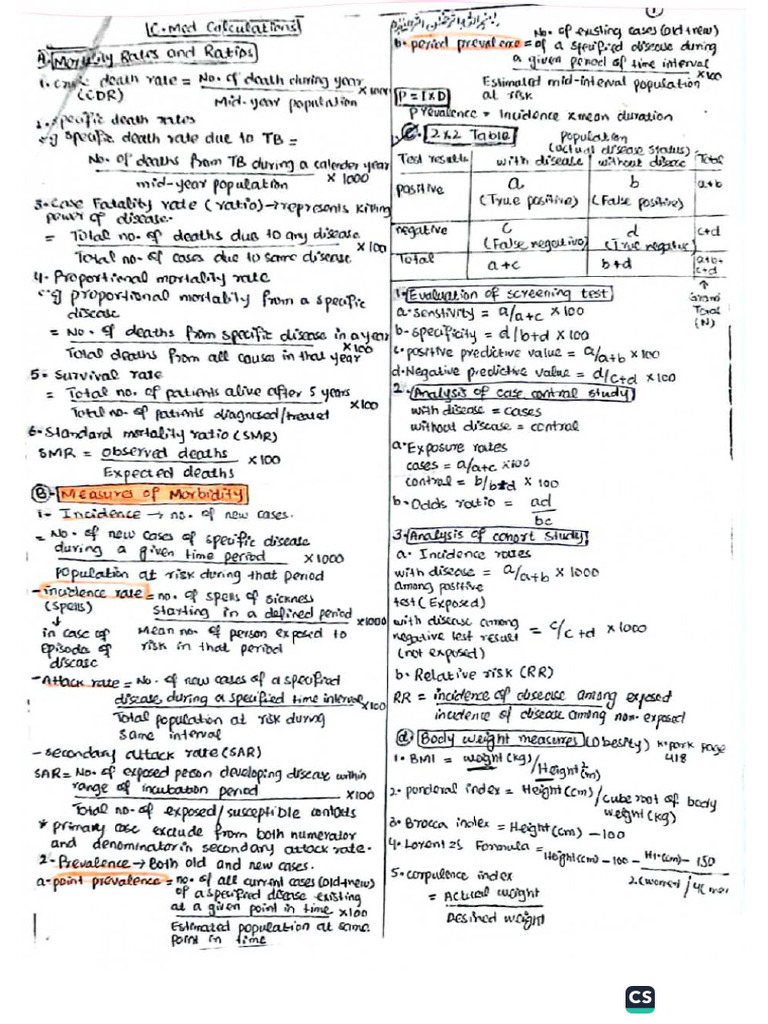 C. Med Calculations
A. Mortality Rates and Ratios
1. Crude death rate = No. of death during year / Mid-year population x 1000
(CDR)
2. Specific death rates
eg specific death rate due to TB =
No. of deaths from TB during a calender year / mid-year population x 1000
3. Case Fatality rate (ratio) → represents killing
power of disease.
= Total no. of deaths due to any disease / Total no. of cases due to same disease x 100
4. Proportional mortality rate
eg proportional mortality from a specific
disease
= No. of deaths from specific disease in a year / Total deaths from all causes in that year x 100
5. Survival rate
= Total no. of patients alive after 5 years / Total no. of patients diagnosed/treated x 100
6. Standard mortality ratio (SMR)
SMR = observed deaths / Expected deaths x 100
B. Measures of Morbidity
1- Incidence → no. of new cases.
= No. of new cases of specific disease
during a given time period / Population at risk during that period x 1000
- incidence rate = no. of spells of sickness
(spells) starting in a defined period / Mean no. of person exposed to x 1000
↓
in case of risk in that period
Episodes of
disease
- Attack rate = No. of new cases of a specified
disease during a specified time interval / Total population at risk during x 100
same interval
- secondary attack rate (SAR)
SAR = No. of exposed person developing disease within
range of incubation period / Total no. of exposed/susceptible contacts x 100
* primary case exclude from both numerator
and denominator in secondary attack rate.
2- Prevalence → Both old and new cases.
a. point prevalence = no. of all current cases (old+new)
of a specified disease existing
at a given point in time / Estimated population at same x 100
point in time
1
b. period prevalence = No. of existing cases (old+new)
of a specified disease during
a given period of time interval / Estimated mid-interval population x 100
at risk
P = I x D
Prevalence = Incidence x mean duration
C. 2x2 Table
population
(actual disease status)
Test results with disease without disease Total
positive a b a+b
(True positive) (False positive)
negative c d c+d
(False negative) (True negative)
Total a+c b+d a+b+c+d
↑
Grand
Total
(N)
1. Evaluation of screening test
a. senstivity = a/a+c x 100
b- specificity = d/b+d x 100
c. positive predictive value = a/a+b x 100
d. Negative predictive value = d/c+d x 100
2. Analysis of case control study
with disease = cases
without disease = control
a. Exposure rates
cases = a/a+c x 100
control = b/b+d x 100
b. Odds ratio = ad / bc
3. Analysis of cohort study
a. Incidence rates
with disease = a/a+b x 1000
among positive
test (Exposed)
with disease among
negative test result = c/c+d x 1000
(not exposed)
b. Relative risk (RR)
RR = incidence of disease among exposed / incidence of disease among non-exposed
d. Body weight measures (Obesity) K. park page
418
1. BMI = weight (kg) / Height (m)
2. ponderal index = Height (cm) / cube root of body
weight (kg)
3. Brocca index = Height (cm) - 100
4. Lorentzs Formula = Height (cm) - 100 - Ht (cm) - 150 / 2 (women) / 4 (men
5. corpulence index
= Actual weight / Desired weight
CS